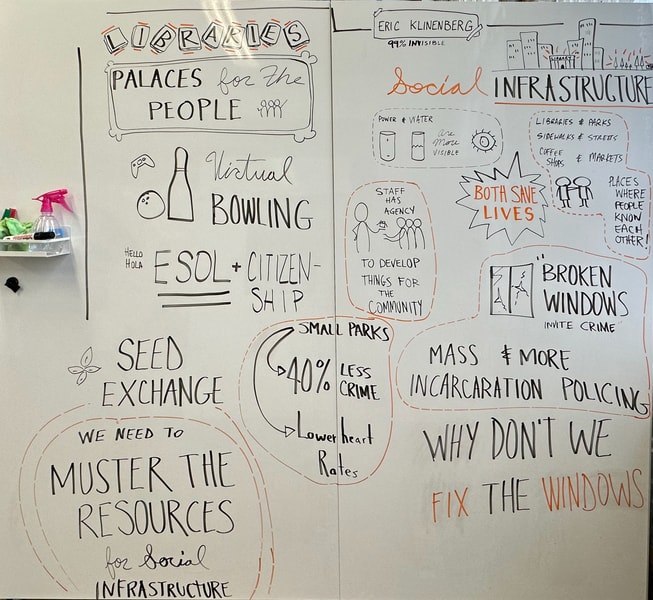 LIBRARIES
PALACES for The
PEOPLE
Virtual
BOWLING
HELLO
HOLA
ESOL + CITIZEN-
SHIP
SEED
EXCHANGE
WE NEED TO
MUSTER THE
RESOURCES
for Social
INFRASTRUCTURE
ERIC KLINENBERG
99% INVISIBLE
Social INFRASTRUCTURE
LIBRARY
POWER & WATER
are
More
VISIBLE
LIBRARIES & PARKS
SIDEWALKS & STREETS
COFFEE
SHOPS & MARKETS
PLACES
WHERE
PEOPLE
KNOW
EACH
OTHER!
BOTH SAVE
LIVES
STAFF
HAS
AGENCY
TO DEVELOP
THINGS FOR
THE
COMMUNITY
"BROKEN
WINDOWS
INVITE CRIME"
MASS & MORE
INCARCARATION POLICING
SMALL PARKS
40% LESS
CRIME
Lower heart
Rates
WHY DON'T WE
FIX THE WINDOWS